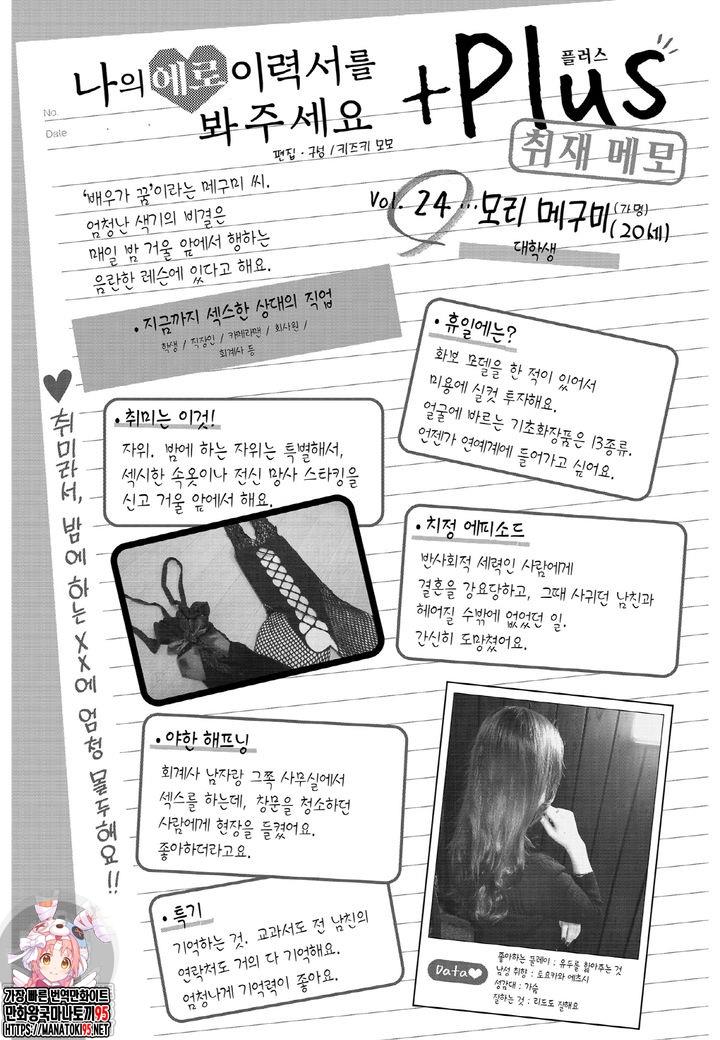 나의 에로 이력서를
봐주세요
+Plus
플러스
취재 메모
No.
Date
편집·구성 / 키즈키 모모
'배우가 꿈'이라는 메구미 씨.
엄청난 색기의 비결은
매일 밤 거울 앞에서 행하는
음란한 레슨에 있다고 해요.
Vol. 24 … 모리 메구미 (가명)
(20세)
대학생
• 지금까지 섹스한 상대의 직업
학생 / 직장인 / 카메라맨 / 회사원 /
회계사 등
• 휴일에는?
화보 모델을 한 적이 있어서
미용에 실컷 투자해요.
얼굴에 바르는 기초화장품은 13종류.
언젠가 연예계에 들어가고 싶어요.
♥취미라서, 밤에 하는 XX에 엄청 몰두해요!!
• 취미는 이것!
자위. 밤에 하는 자위는 특별해서,
섹시한 속옷이나 전신 망사 스타킹을
신고 거울 앞에서 해요.
• 치정 에피소드
반사회적 세력인 사람에게
결혼을 강요당하고, 그때 사귀던 남친과
헤어질 수밖에 없었던 일.
간신히 도망쳤어요.
• 야한 해프닝
회계사 남자랑 그쪽 사무실에서
섹스를 하는데, 창문을 청소하던
사람에게 현장을 들켰어요.
좋아하더라고요.
• 특기
기억하는 것. 교과서도 전 남친의
연락처도 거의 다 기억해요.
엄청나게 기억력이 좋아요.
Data♥
좋아하는 플레이 : 유두를 핥아주는 것
남성 취향 : 토요카와 에츠시
성감대 : 가슴
잘하는 것 : 리드도 잘해요
가장 빠른 번역만화이트
만화왕국마나토끼95
HTTPS://MANATOKI95.NET